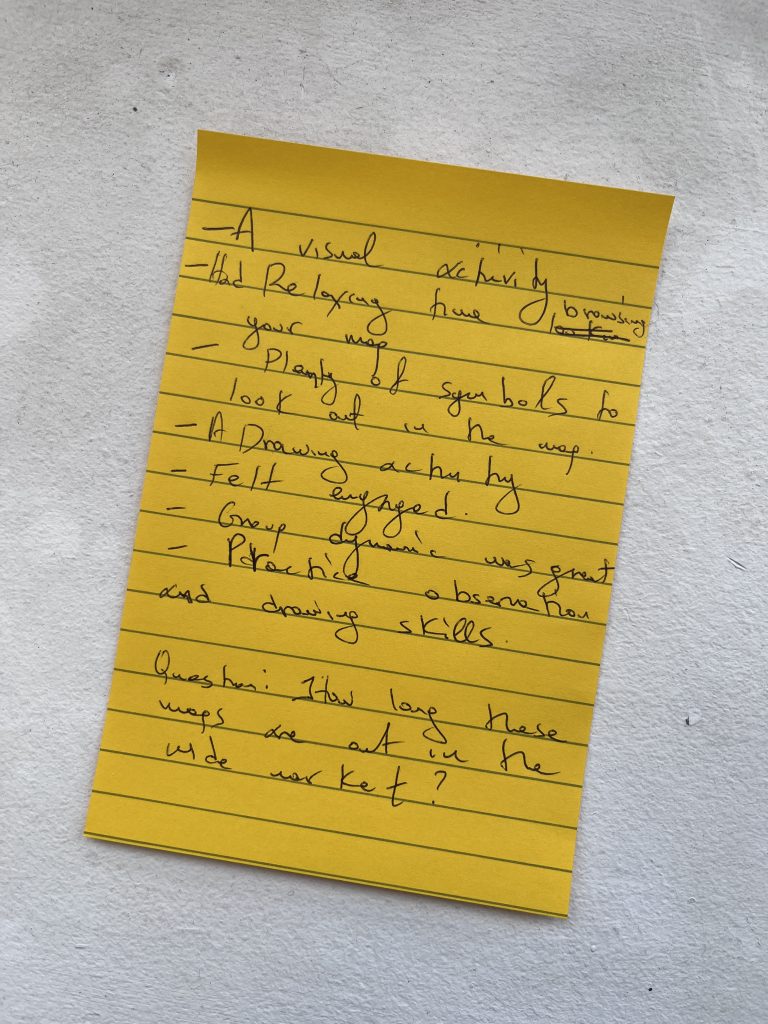 - A visual activity
- Had Relaxing time browsing
your map
- Planty of symbols to
look out in the map.
- A Drawing activity
- Felt engaged.
- Group dynamic was great
- Practice observation
and drawing skills.
Question: How long these
maps are out in the
wide market?